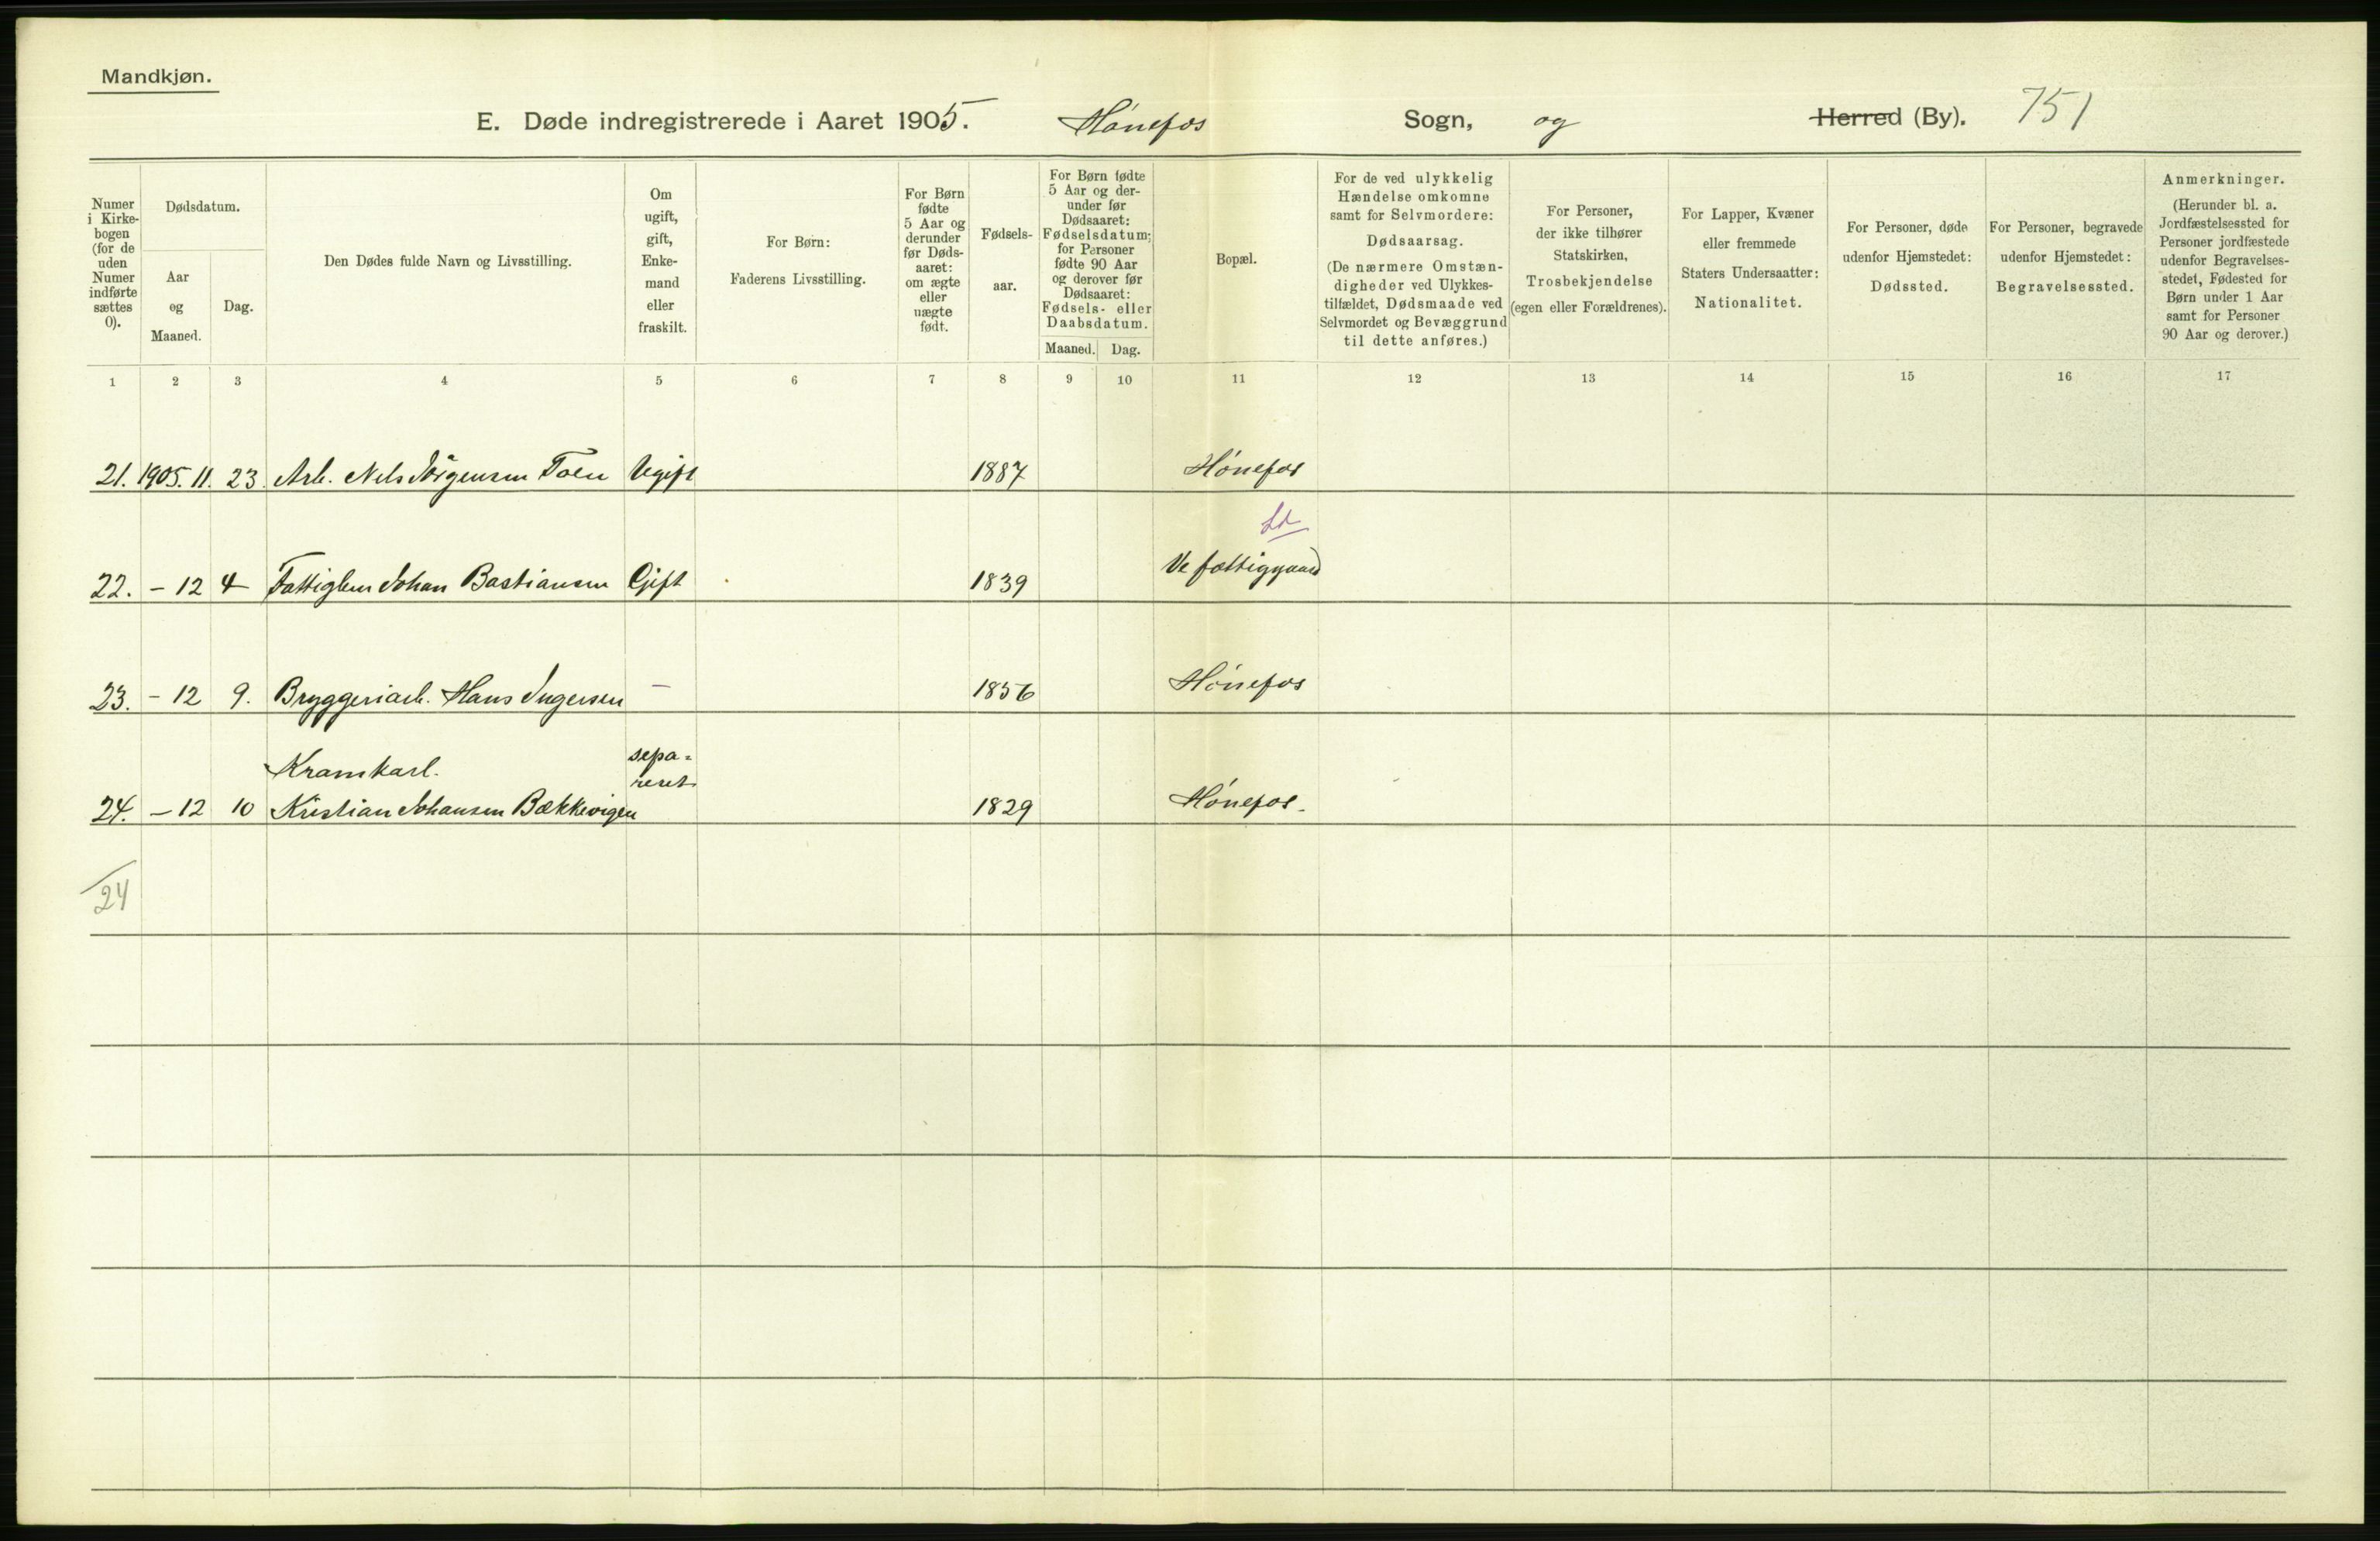 Mandkjøn.
E. Døde indregistrerede i Aaret 1905. Hønefos Sogn, og Herred (By). 751
Numer i Kirkebogen (for de uden Numer indførte sættes 0).
Dødsdatum.
Aar og Maaned.
Dag.
Den Dødes fulde Navn og Livsstilling.
Om ugift, gift, Enkemand eller fraskilt.
For Børn:
Faderens Livsstilling.
For Børn fødte 5 Aar og derunder før Dødsaaret: om ægte eller uægte født.
Fødselsaar.
For Børn fødte 5 Aar og derunder før Dødsaaret: Fødselsdatum; for Personer fødte 90 Aar og derover før Dødsaaret: Fødsels- eller Daabsdatum.
Maaned. Dag.
Bopæl.
For de ved ulykkelig Hændelse omkomne samt for Selvmordere:
Dødsaarsag.
(De nærmere Omstændigheder ved Ulykkestilfældet, Dødsmaade ved Selvmordet og Bevæggrund til dette anføres.)
For Personer, der ikke tilhører Statskirken, Trosbekjendelse (egen eller Forældrenes).
For Lapper, Kvæner eller fremmede Staters Undersaatter: Nationalitet.
For Personer, døde udenfor Hjemstedet: Dødssted.
For Personer, begravede udenfor Hjemstedet: Begravelsessted.
Anmerkninger.
(Herunder bl. a. Jordfæstelsessted for Personer jordfæstede udenfor Begravelsesstedet, Fødested for Børn under 1 Aar samt for Personer 90 Aar og derover.)
1 2 3 4 5 6 7 8 9 10 11 12 13 14 15 16 17
21. 1905. 11. 23. Arb. Nels Jörgensen Toen Ugift 1887 Hønefos
22. – 12 4 Fattiglem Johan Bastiansen Gift 1839 Ve fattiggaard
23. – 12 9. Bryggeriarb. Hans Ingersen – 1856 Hönefos
Kramkarl. sepa=
reret
24. – 12 10 Kristian Johansen Bækkevigen 1829 Hönefos.
24